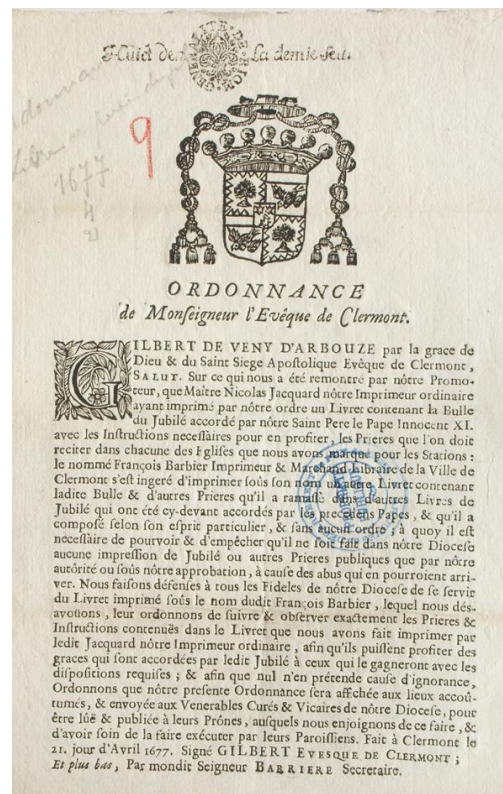 Huict den. La demie feu.
GENERALITE DE RIOM
9
1677
4
21
ORDONNANCE
de Monseigneur l'Evêque de Clermont.
GILBERT DE VENY D'ARBOUZE par la grace de
Dieu & du Saint Siege Apostolique Evêque de Clermont,
SALUT. Sur ce qui nous a été remontré par nôtre Promo-
teur, que Maître Nicolas Jacquard nôtre Imprimeur ordinaire
ayant imprimé par nôtre ordre un Livret contenant la Bulle
du Jubilé accordé par nôtre Saint Pere le Pape Innocent XI.
avec les Instructions necessaires pour en profiter, les Prieres que l'on doit
reciter dans chacune des Eglises que nous avons marqué pour les Stations :
le nommé François Barbier Imprimeur & Marchand Libraire de la Ville de
Clermont s'est ingeré d'imprimer soûs son nom un autre Livret contenant
ladite Bulle & d'autres Prieres qu'il a ramassé dans d'autres Livres de
Jubilé qui ont été cy-devant accordés par les precedens Papes, & qu'il a
composé selon son esprit particulier, & sans aucun ordre ; à quoy il est
necessaire de pourvoir & d'empêcher qu'il ne soit fait dans nôtre Diocese
aucune impression de Jubilé ou autres Prieres publiques que par nôtre
autorité ou soûs nôtre approbation, à cause des abus qui en pourroient arri-
ver. Nous faisons défenses à tous les Fideles de nôtre Diocese de se servir
du Livret imprimé soûs le nom dudit François Barbier, lequel nous dés-
avoüons, leur ordonnons de suivre & observer exactement les Prieres &
Instructions contenuës dans le Livret que nous avons fait imprimer par
ledit Jacquard nôtre Imprimeur ordinaire, afin qu'ils puissent profiter des
graces qui sont accordées par ledit Jubilé à ceux qui le gagneront avec les
dispositions requises ; & afin que nul n'en pretende cause d'ignorance,
Ordonnons que nôtre presente Ordonnance sera affichée aux lieux accoû-
tumés, & envoyée aux Venerables Curés & Vicaires de nôtre Diocese, pour
être lûë & publiée à leurs Prônes, ausquels nous enjoignons de ce faire, &
d'avoir soin de la faire exécuter par leurs Paroissiens. Fait à Clermont le
21. jour d'Avril 1677. Signé GILBERT EVESQUE DE CLERMONT ;
Et plus bas, Par mondit Seigneur BARRIERE Secretaire.